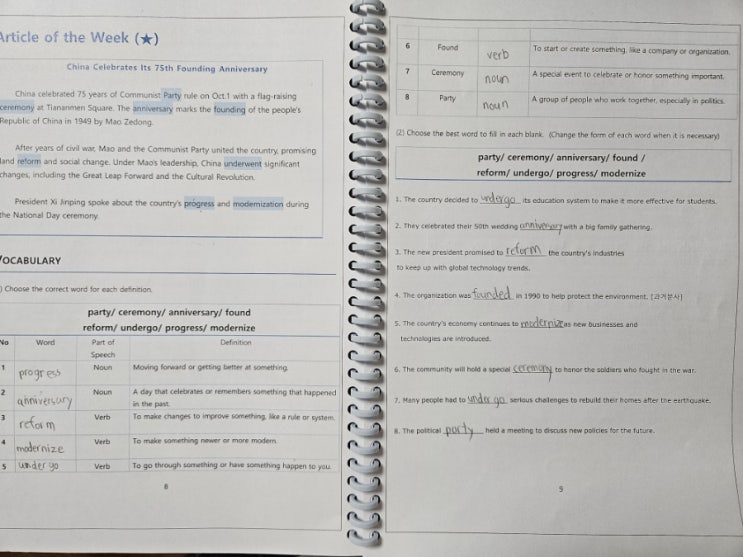 Article of the Week (★)
China Celebrates Its 75th Founding Anniversary
China celebrated 75 years of Communist Party rule on Oct.1 with a flag-raising
ceremony at Tiananmen Square. The anniversary marks the founding of the people's
Republic of China in 1949 by Mao Zedong.
After years of civil war, Mao and the Communist Party united the country, promising
land reform and social change. Under Mao's leadership, China underwent significant
changes, including the Great Leap Forward and the Cultural Revolution.
President Xi Jinping spoke about the country's progress and modernization during
the National Day ceremony.
VOCABULARY
) Choose the correct word for each definition.
party/ ceremony/ anniversary/ found
reform/ undergo/ progress/ modernize
No Word Part of Speech Definition
1 progress Noun Moving forward or getting better at something.
2 anniversary Noun A day that celebrates or remembers something that happened
in the past.
3 reform Verb To make changes to improve something, like a rule or system.
4 modernize Verb To make something newer or more modern.
5 undergo Verb To go through something or have something happen to you.
8
6 Found verb To start or create something, like a company or organization.
7 Ceremony noun A special event to celebrate or honor something important.
8 Party noun A group of people who work together, especially in politics.
(2) Choose the best word to fill in each blank. (Change the form of each word when it is necessary)
party/ ceremony/ anniversary/ found /
reform/ undergo/ progress/ modernize
1. The country decided to undergo its education system to make it more effective for students.
2. They celebrated their 50th wedding anniversary with a big family gathering.
3. The new president promised to reform the country's industries
to keep up with global technology trends.
4. The organization was founded in 1990 to help protect the environment. [과거분사]
5. The country's economy continues to modernize as new businesses and
technologies are introduced.
6. The community will hold a special ceremony to honor the soldiers who fought in the war.
7. Many people had to undergo serious challenges to rebuild their homes after the earthquake.
8. The political party held a meeting to discuss new policies for the future.
9